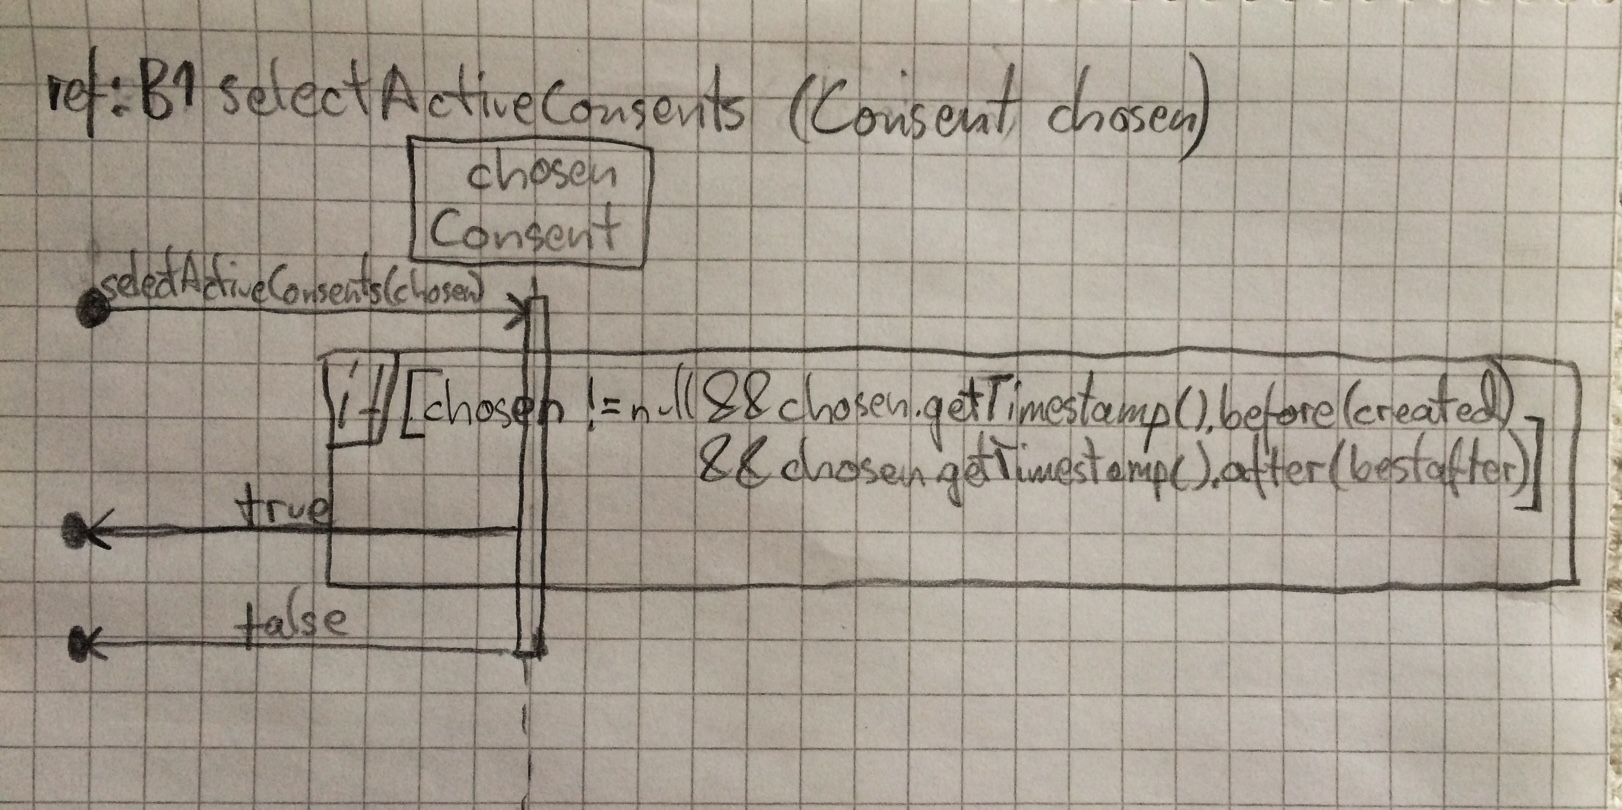 ref:B1 selectActiveConsents (Consent chosen)
chosen
Consent
selectActiveConsents(chosen)
if [chosen != null && chosen.getTimestamp().before(created)
&& chosen.getTimestamp().after(bestafter)]
true
false